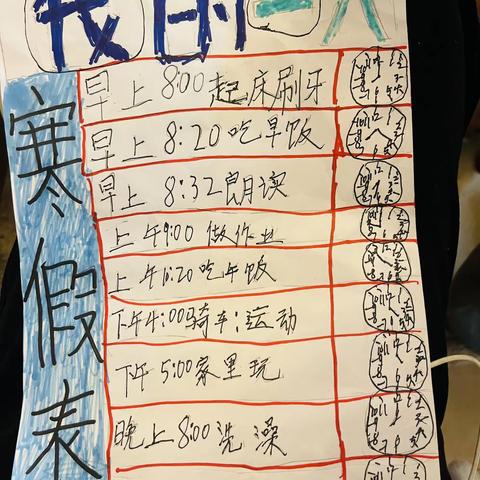 我的一天
寒假表
早上 8:00 起床刷牙
早上 8:20 吃早饭
早上 8:32 朗读
上午9:00 做作业
上午11:20 吃午饭
下午4:00骑车;运动
下午 5:00家里玩
晚上 8:00 洗澡